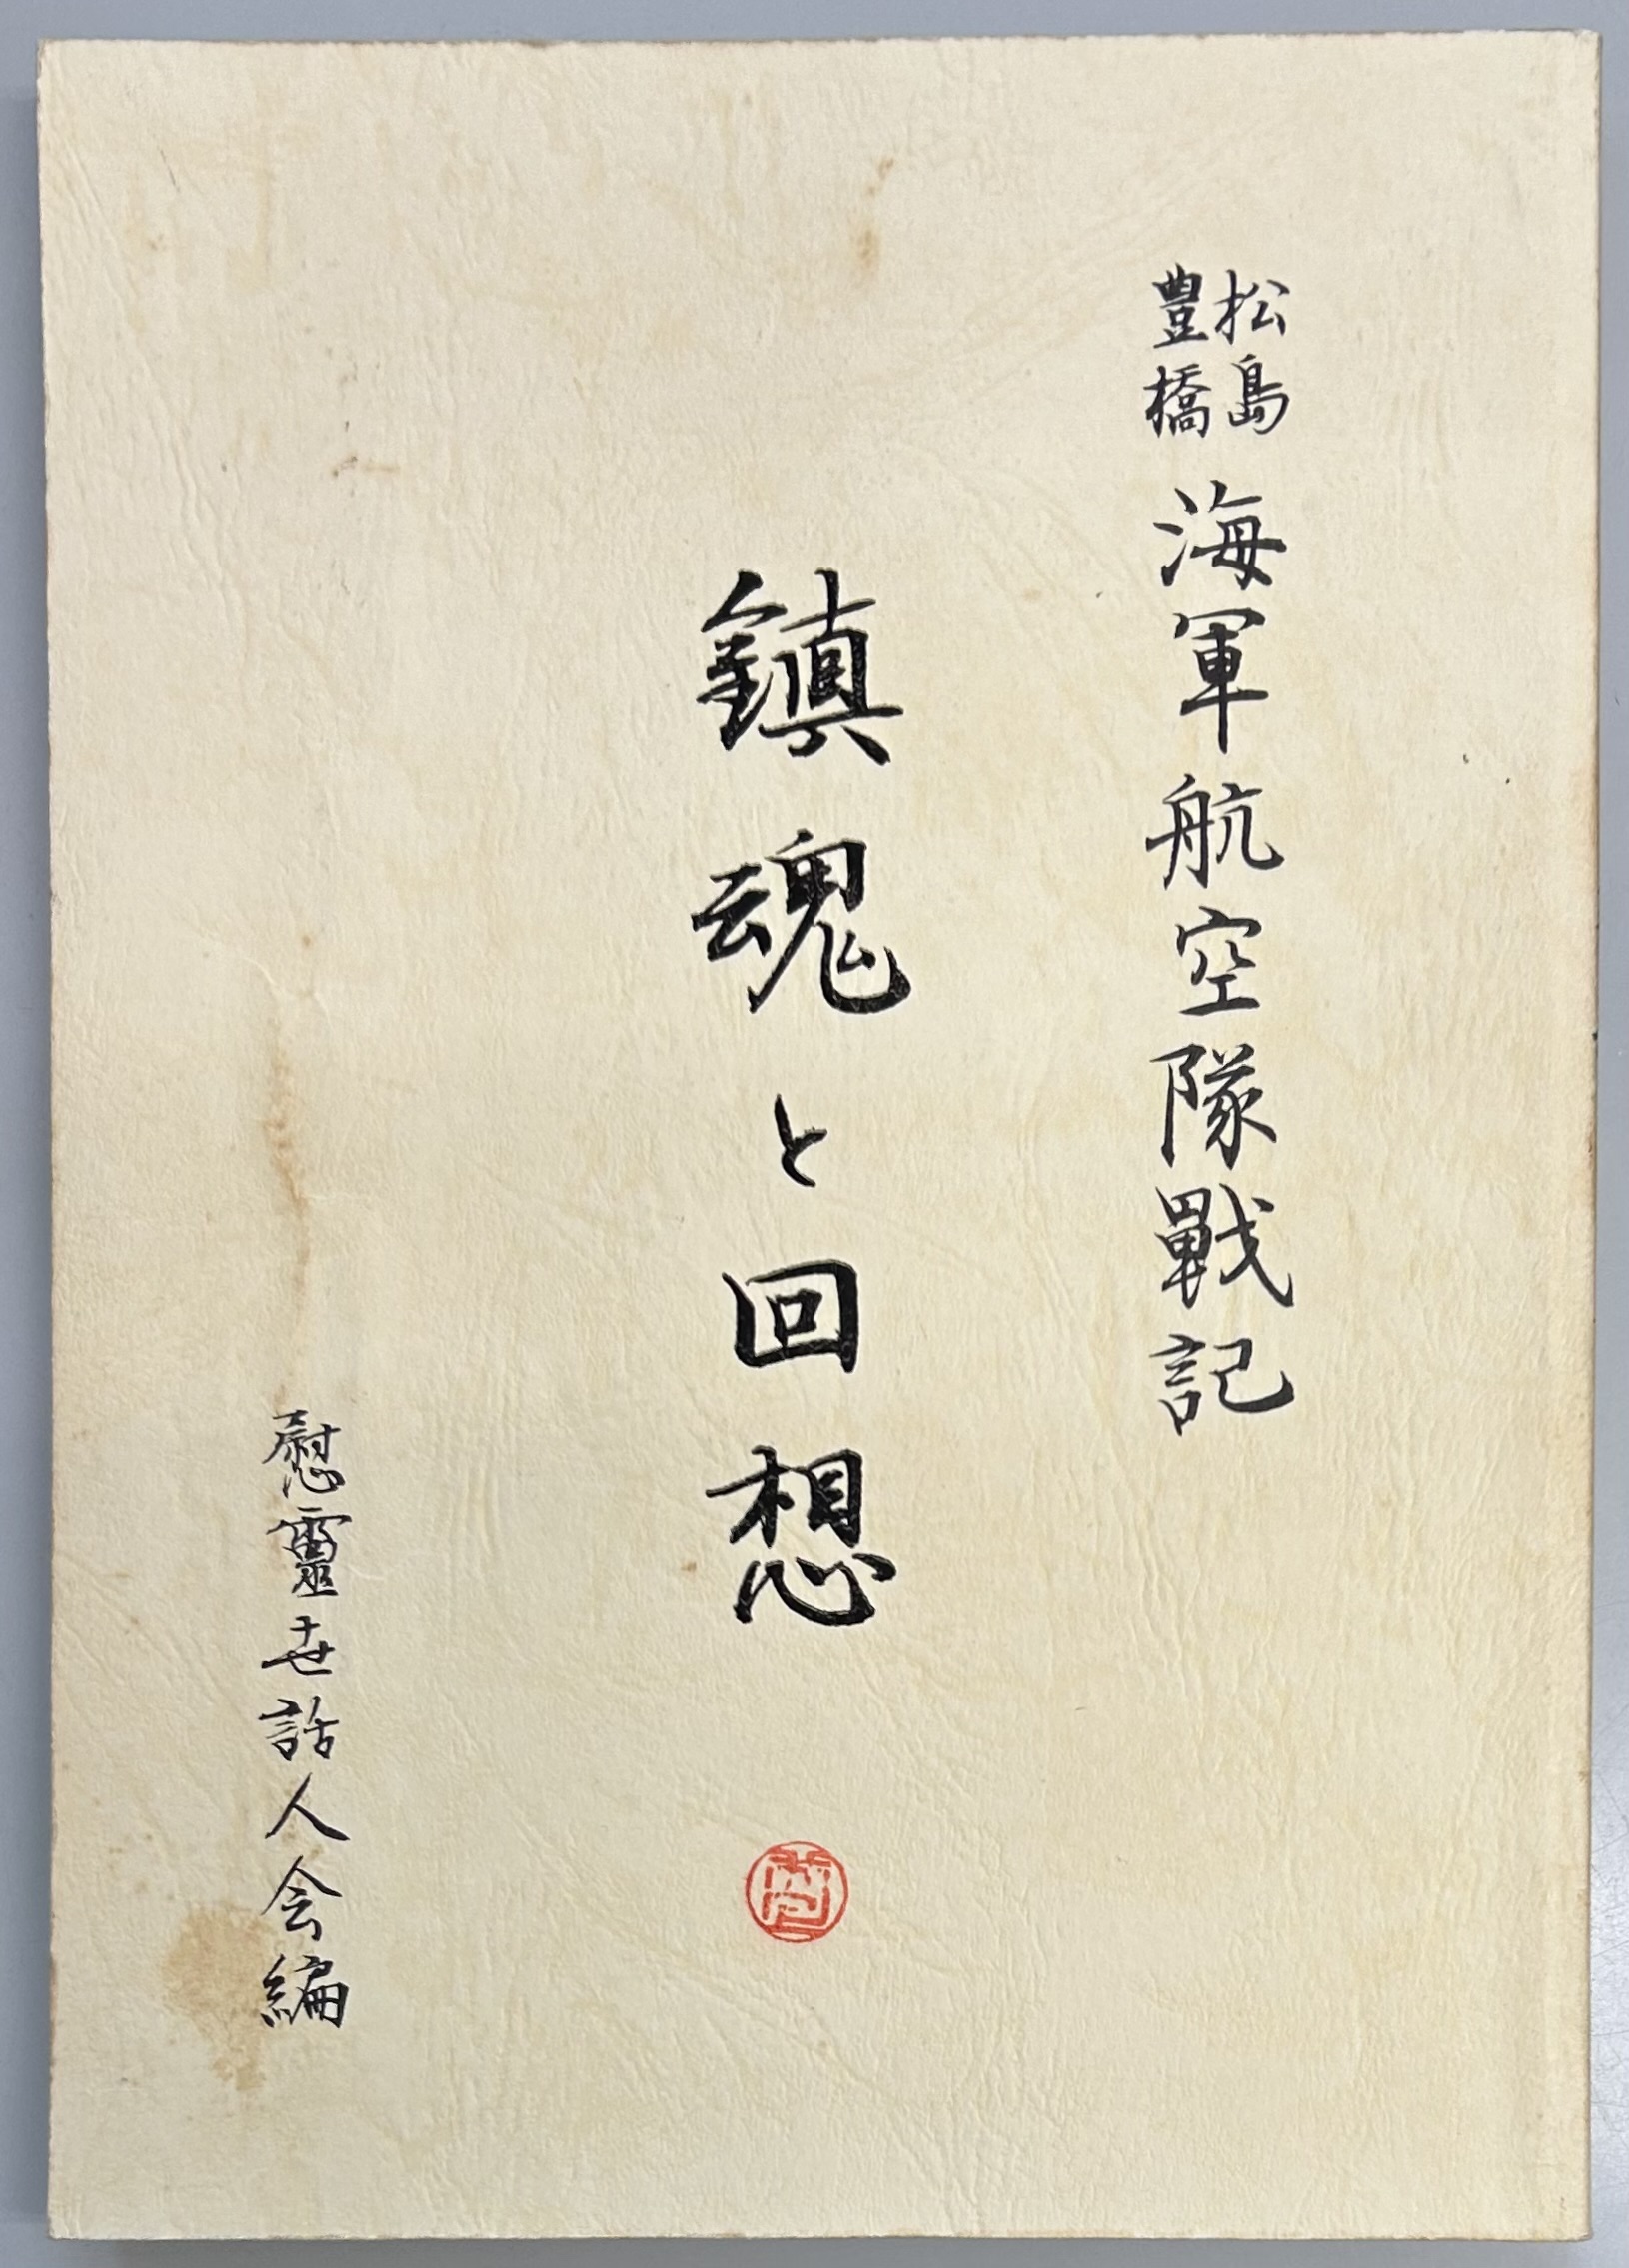 松島
豊橋
海軍航空隊戰記
鎮魂と回想
慰靈世話人会編